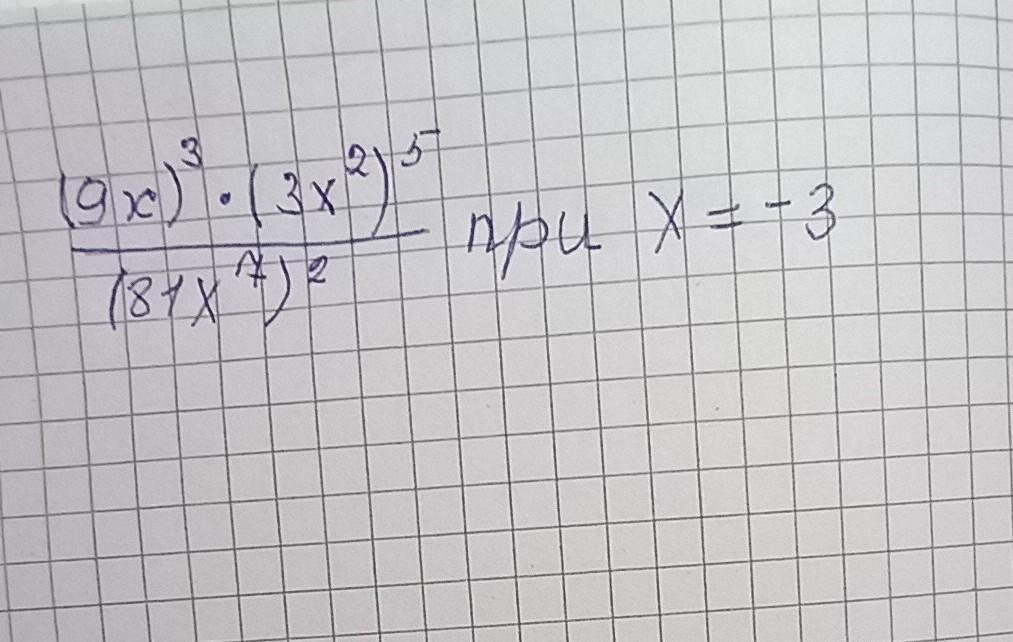 (9x)³ · (3x²)⁵
(81x⁷)² при x = -3